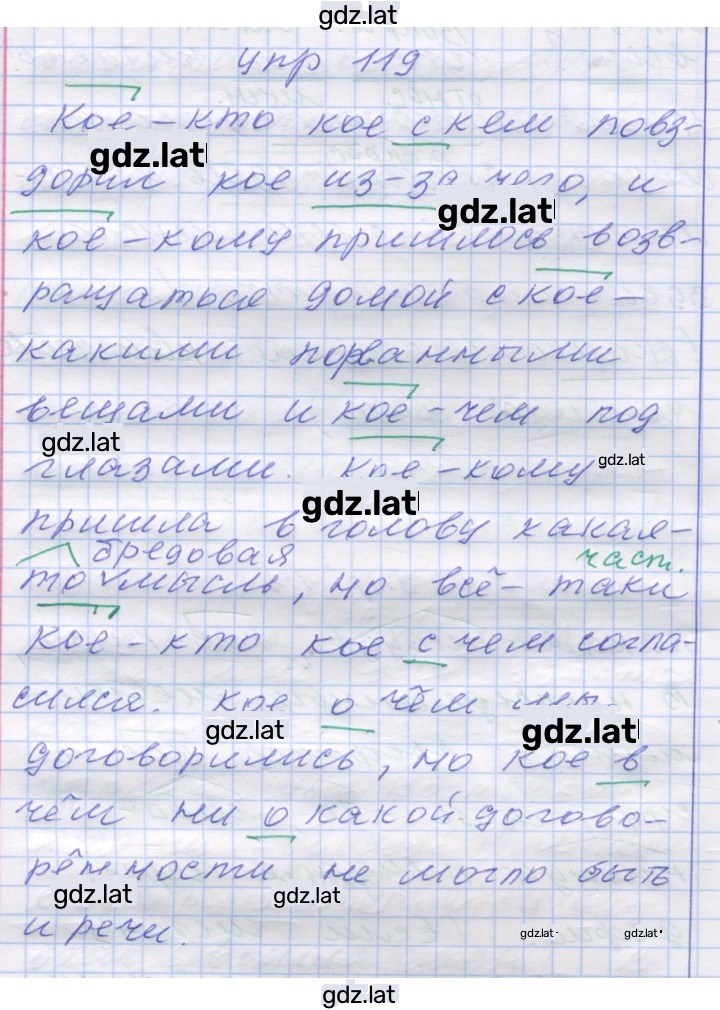 gdz.lat
упр 119
Кое-кто кое с кем повз-
gdz.lat
дорил кое из-за чего, и
gdz.lat
кое-кому пришлось возв-
ращаться домой с кое-
какими порванными
вещами и кое-чем под
gdz.lat
глазами. Кое-кому
gdz.lat
gdz.lat
пришла в голову какая-
бредовая част.
то ✓ мысль, но всё-таки
кое-кто кое с чем согла-
сился. Кое о чём мы
gdz.lat
gdz.lat
договорились, но кое в
чём ни о какой догово-
рённости не могло быть
gdz.lat
gdz.lat
и речи.
gdz.lat
gdz.lat
gdz.lat